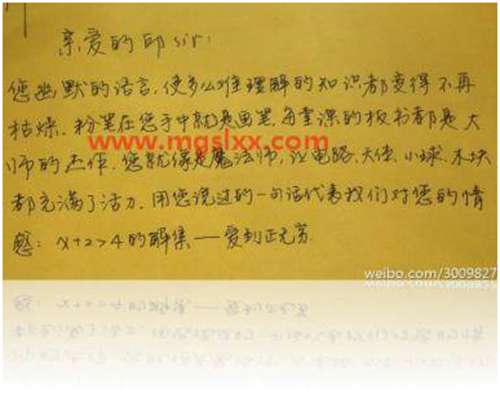 亲爱的邱sir:
您幽默的语言,使多么难理解的知识都变得不再
枯燥.粉笔在您手中就是画笔.每堂课的板书都是大
师的杰作.您就像是魔法师,让电路、天体、小球、木块
都充满了活力.用您说过的一句话代表我们对您的情
感:x+2>4的解集——爱到正无穷.
www.mgslxx.com
weibo.com/3009827